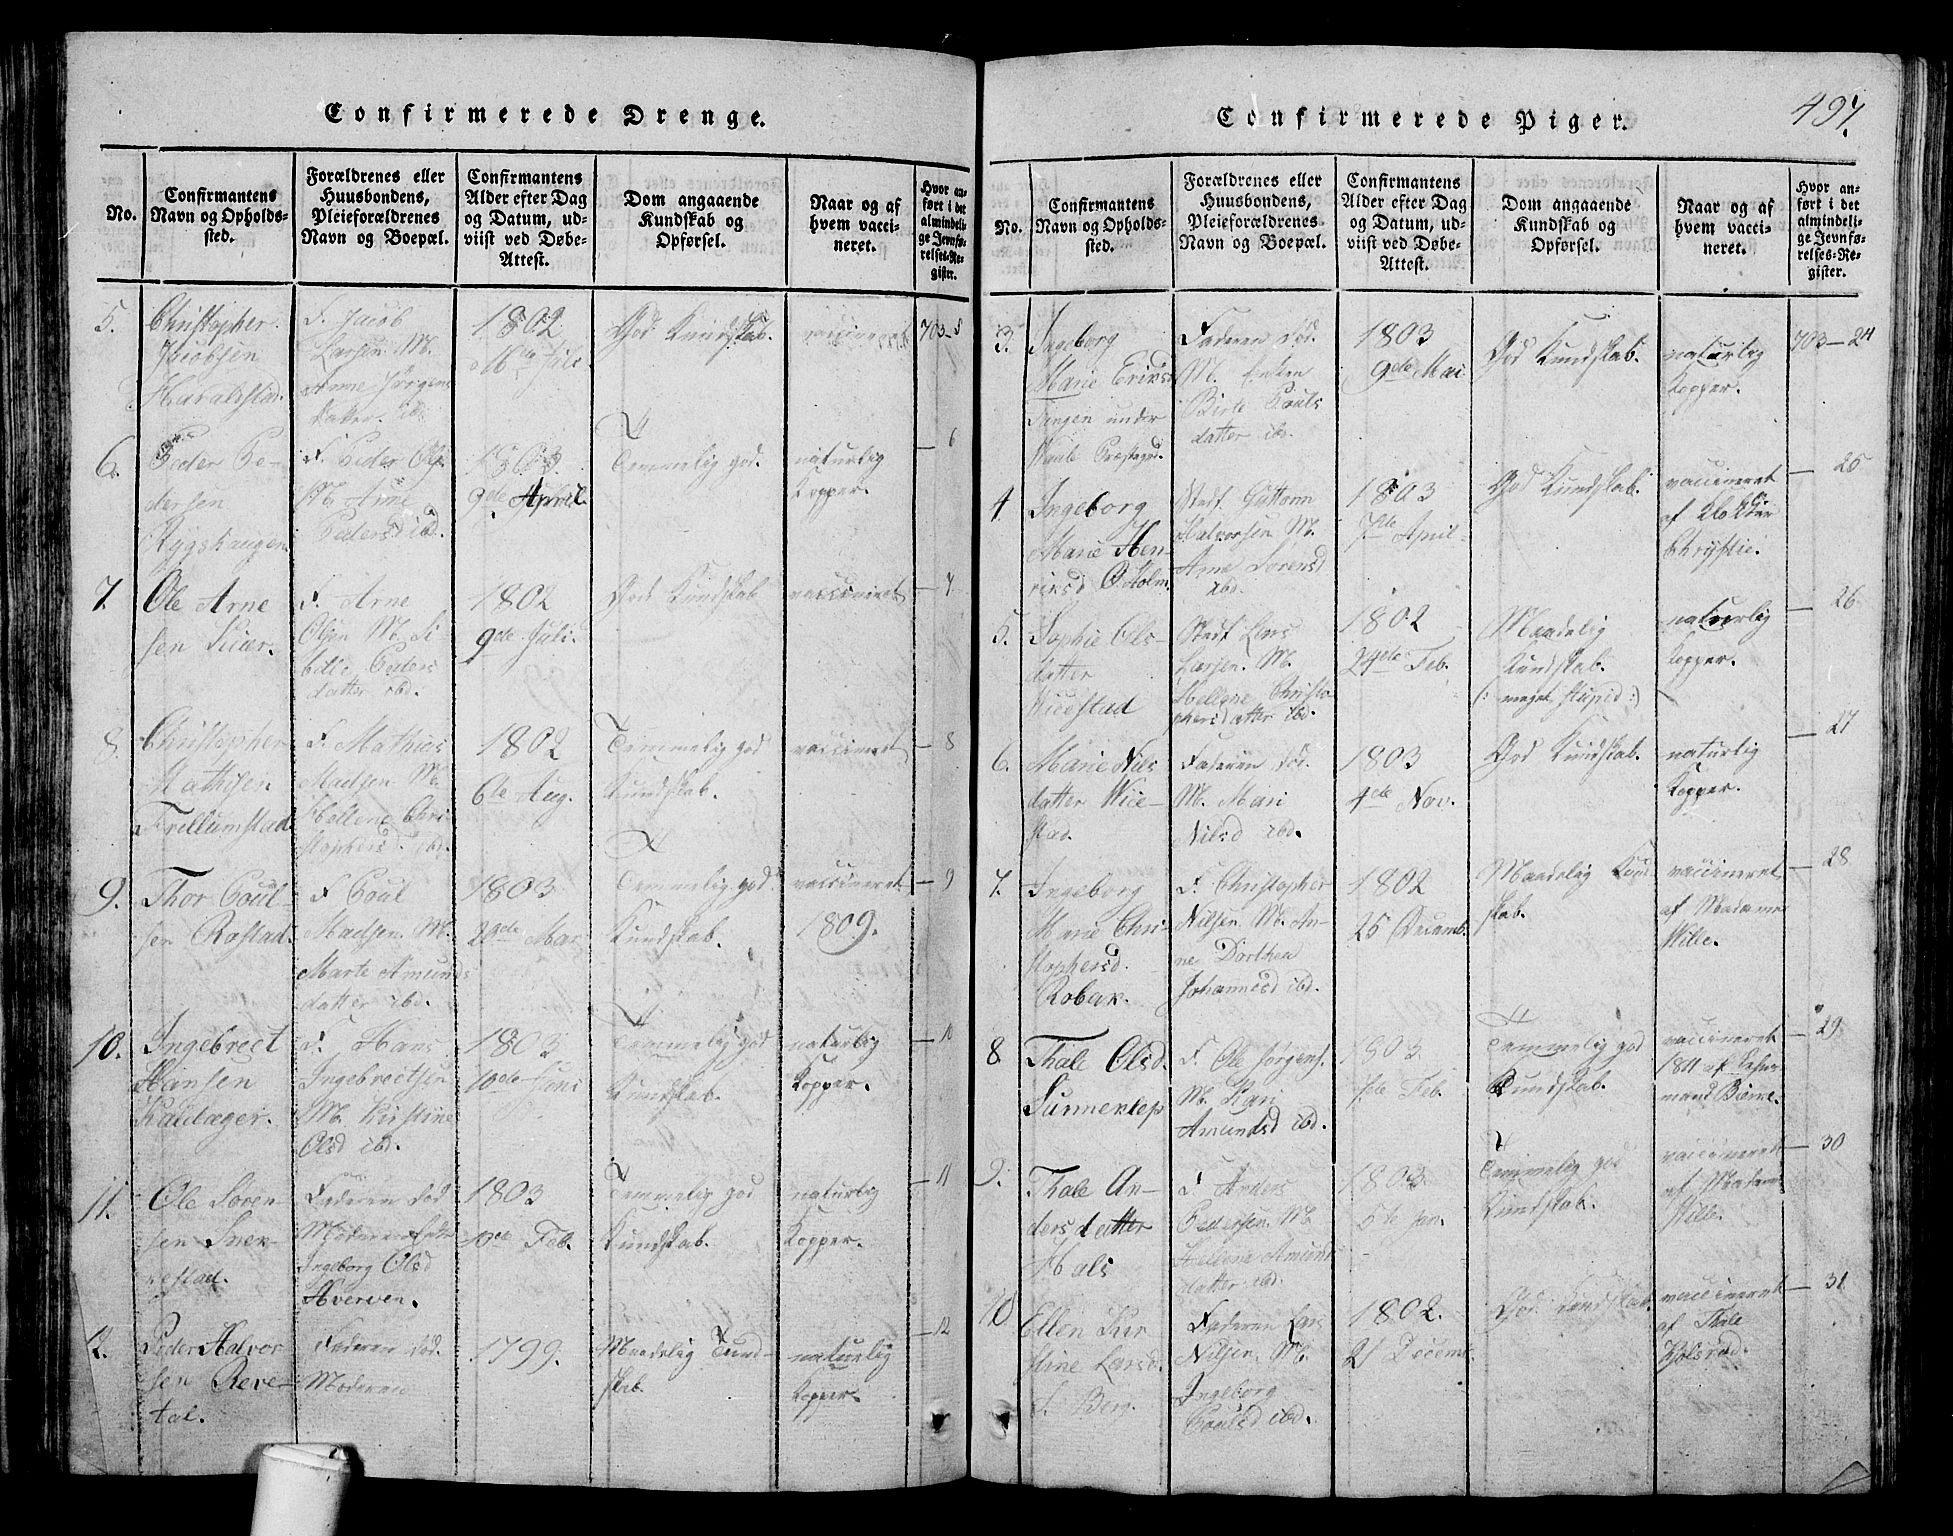 Confirmerede Drenge.
No.
Confirmantens
Navn og Opholds-
sted.
Forældrenes eller
Huusbondens,
Pleieforældrenes
Navn og Boepæl.
Confirmantens
Alder efter Dag
og Datum, ud-
viist ved Døbe-
Attest.
Dom angaaende
Kundskab og
Opførsel.
Naar og af
hvem vacci-
neret.
Hvor an-
ført i det
almindeli-
ge Jevnfø-
relses-Re-
gister.
5.
Christopher
Jacobsen
Haraldstad.
F. Jacob
Larsen. M.
Anne Jørgens
datter. ibd.
1802
16de Juli
God Kundskab.
vaccineret
703-5
6.
Peder Pe-
dersen
Rygshaugen
F. Peder Ols
M. Anne
Pedersd ibd.
1803
9de April.
Temmelig god.
naturlig
Kopper.
6
7.
Ole Arne
sen
F. Arne
Olsen M. Si
bille Peders
datter ibd.
1802
9de Juli.
God Kundskab
vaccineret
7
8.
Christopher
Mathisen
Trellumstad
F. Mathies
Madsen M.
Hellene Chri
stophersd. ibd.
1802
6te Aug.
Temmelig god
Kundskab.
vaccineret
8
9.
Thor Poul-
sen Rostad.
F. Poul
Madsen. M.
Marte Amunds
datter ibd.
1803
Mar.
Temmelig god
Kundskab.
vaccineret
1809.
9
10.
Ingebrect
Hansen
F. Hans
Ingebrectsen
M. Kirstine
Olsd ibd.
1803
10de Juni
Temmelig god
Kundskab.
naturlig
Kopper.
10
11.
Ole Søren-
sen
Faderen død
Moderen
Ingeborg Olsd
Averven.
1803
Feb.
Temmelig god
Kundskab.
naturlig
Kopper.
11
12.
Peder Halvor
sen Reve-
tal.
Faderen død.
Moderen
1799.
Maadelig Kund-
skab.
naturlig
Kopper.
12
Confirmerede Piger.
497.
No.
Confirmantens
Navn og Opholds-
sted.
Forældrenes eller
Huusbondens,
Pleieforældrenes
Navn og Boepæl.
Confirmantens
Alder efter Dag
og Datum, ud-
viist ved Døbe-
Attest.
Dom angaaende
Kundskab og
Opførsel.
Naar og af
hvem vacci-
neret.
Hvor an-
ført i det
almindeli-
ge Jevnfø-
relses-Re-
gister.
3.
Ingeborg
Marie Eriks
under
Faderen død.
M. Enken
Birte Pouls
datter ibd.
1803
9de Mai
God Kundskab.
naturlig
Kopper.
703-24
4.
Ingeborg
Marie Hen-
riksd Holm.
Stedf. Guttorm
Halvorsen M.
Anne Sørensd
ibd.
1803
7de April.
God Kundskab.
vaccineret
af
Chrystie.
25
5.
Sophie Ols-
datter
Wicestad
Stedf. Lars
Larsen. M.
Hellene Christo
phersdatter ibd.
1802
24de Feb.
Maadelig
Kundskab.
(: meget stupid :)
naturlig
Kopper.
26
6.
Marie Niels
datter Wice-
stad.
Faderen død.
M. Mari
Nilsd ibd.
1803
4de Nov.
God Kundskab.
naturlig
Kopper.
27
7.
Ingeborg
Marie Chri-
stophersd.
Robak.
F. Christopher
Nilsen M. An-
ne Dorthea
Johannesd ibd.
1802
25 Decemb.
Maadelig Kund
skab.
vaccineret
af Madame
Wille.
28
8
Thale Olsd.
Sunnentep
F. Ole Jørgens.
M. Kari
Amundsd ibd.
1803
Feb.
Temmelig god
Kundskab.
vaccineret
1811 af
mand Bierke.
29
9.
Thale An-
dersdatter
Hals
F. Anders
Pedersen. M.
Hellene Amunds
datter ibd.
1803
5te Jan.
Temmelig god
Kundskab.
vaccineret
af Madam
Wille.
30
10
Ellen Kir
stine Larsd.
S. Berg.
Faderen Lars
Nilsen. M.
Ingeborg
Paulsd ibd.
1802.
21 Decemb.
God Kundskab.
vaccineret
af Thale
Holsrød.
31